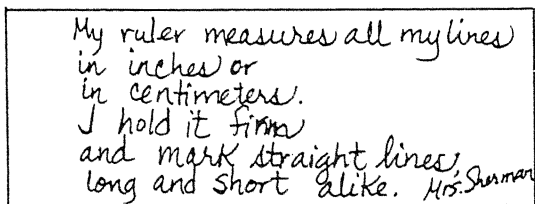 My ruler measures all my lines
in inches or
in centimeters.
I hold it firm
and mark straight lines,
long and short alike. Mrs. Sherman